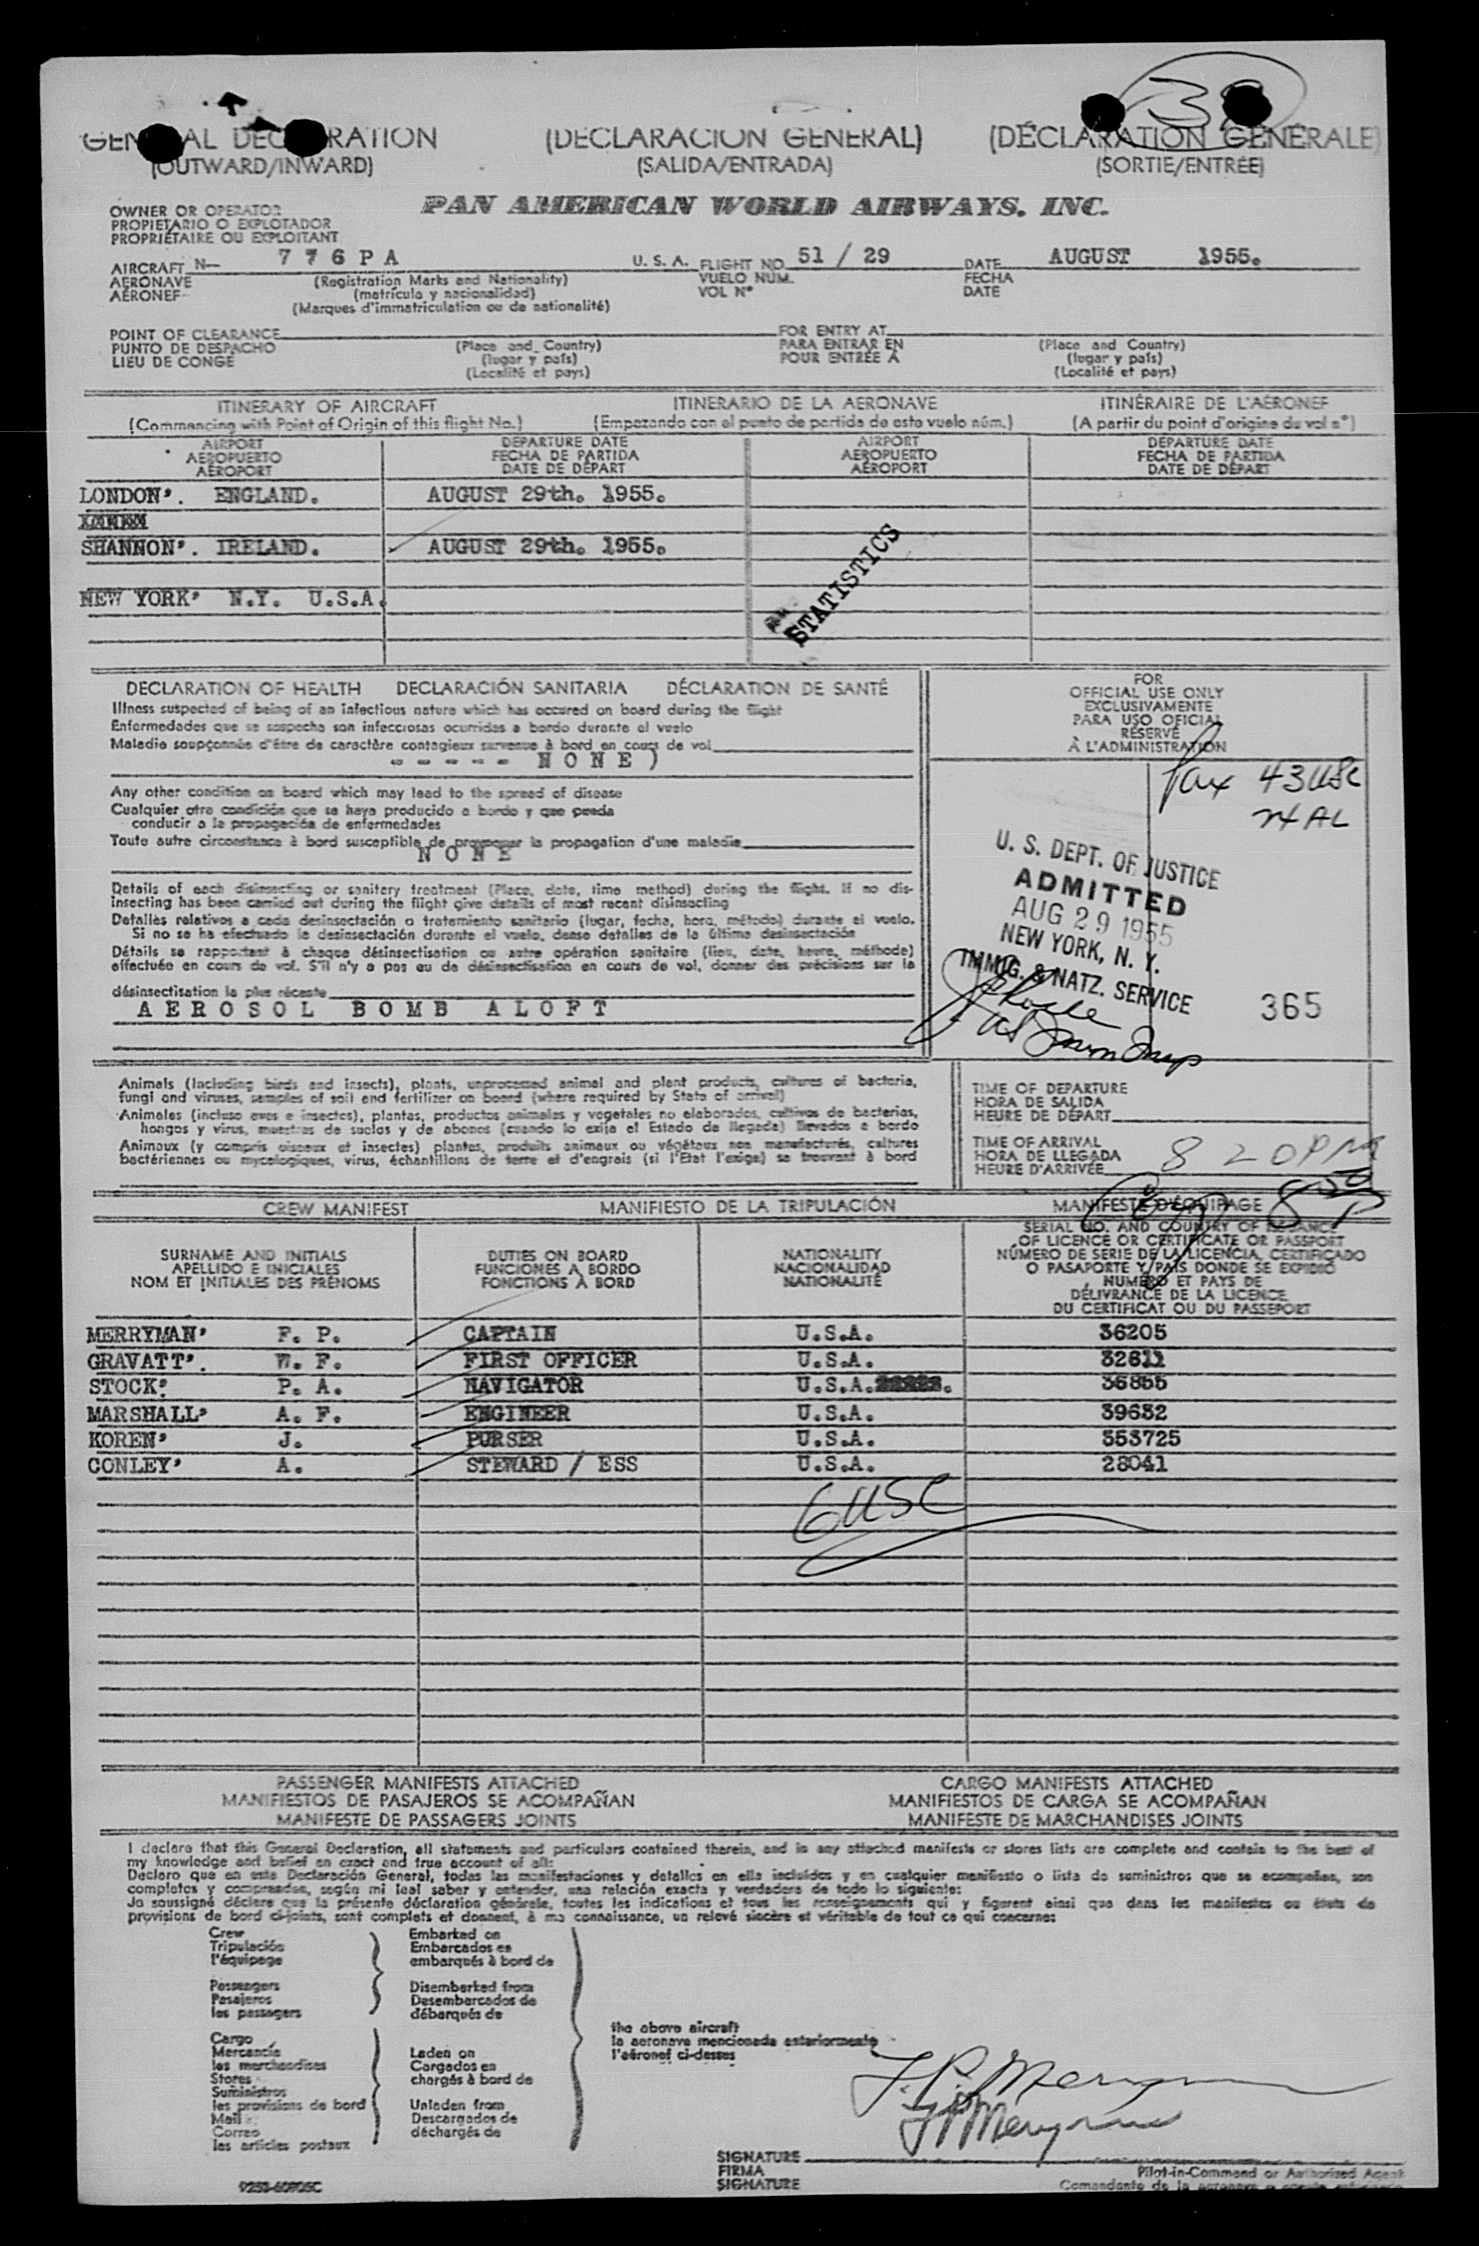 38
GENERAL DECLARATION (DECLARACION GENERAL) (DÉCLARATION GÉNÉRALE)
(OUTWARD/INWARD) (SALIDA/ENTRADA) (SORTIE/ENTRÉE)
OWNER OR OPERATOR PAN AMERICAN WORLD AIRWAYS, INC.
PROPIETARIO O EXPLOTADOR
PROPRIÉTAIRE OU EXPLOITANT
AIRCRAFT N— 776PA U. S. A. FLIGHT NO. 51 / 29 DATE AUGUST 1955.
AERONAVE (Registration Marks and Nationality) VUELO NUM. FECHA
AÉRONEF (matrícula y nacionalidad) VOL N° DATE
(Marques d'immatriculation ou de nationalité)
POINT OF CLEARANCE FOR ENTRY AT
PUNTO DE DESPACHO (Place and Country) PARA ENTRAR EN (Place and Country)
LIEU DE CONGÉ (lugar y país) POUR ENTRÉE À (lugar y país)
(Localité et pays) (Localité et pays)
ITINERARY OF AIRCRAFT ITINERARIO DE LA AERONAVE ITINÉRAIRE DE L'AÉRONEF
(Commencing with Point of Origin of this flight No.) (Empezando con el punto de partida de este vuelo núm.) (A partir du point d'origine du vol n°)
AIRPORT DEPARTURE DATE AIRPORT DEPARTURE DATE
AEROPUERTO FECHA DE PARTIDA AEROPUERTO FECHA DE PARTIDA
AÉROPORT DATE DE DÉPART AÉROPORT DATE DE DÉPART
LONDON'. ENGLAND. AUGUST 29th. 1955.
SHANNON'. IRELAND. AUGUST 29th. 1955.
NEW YORK' N.Y. U.S.A.
STATISTICS
DECLARATION OF HEALTH DECLARACIÓN SANITARIA DÉCLARATION DE SANTÉ
Illness suspected of being of an infectious nature which has occured on board during the flight
Enfermedades que se sospecha son infecciosas ocurridas a bordo durante el vuelo
Maladie soupçonnée d'être de caractère contagieux survenue à bord en cours de vol
- - - - - NONE )
Any other condition on board which may lead to the spread of disease
Cualquier otra condición que se haya producido a bordo y que pueda
conducir a la propagación de enfermedades
Toute autre circonstance à bord susceptible de provoquer la propagation d'une maladie
NONE
Details of each disinsecting or sanitary treatment (Place, date, time method) during the flight. If no dis-
insecting has been carried out during the flight give details of most recent disinsecting
Detalles relativos a cada desinsectación o tratamiento sanitario (lugar, fecha, hora, método) durante el vuelo.
Si no se ha efectuado la desinsectación durante el vuelo, dense detalles de la última desinsectación
Détails se rapportant à chaque désinsectisation ou autre opération sanitaire (lieu, date, heure, méthode)
effectuée en cours de vol. S'il n'y a pas eu de désinsectisation en cours de vol, donner des précisions sur la
désinsectisation la plus récente
AEROSOL BOMB ALOFT
FOR
OFFICIAL USE ONLY
EXCLUSIVAMENTE
PARA USO OFICIAL
RÉSERVÉ
À L'ADMINISTRATION
Pax 43 USC
24 AL
U. S. DEPT. OF JUSTICE
ADMITTED
AUG 29 1955
NEW YORK, N. Y.
IMMIG. & NATZ. SERVICE
365
Animals (Including birds and insects), plants, unprocessed animal and plant products, cultures of bacteria,
fungi and viruses, samples of soil and fertilizer on board (where required by State of arrival)
Animales (incluso aves e insectos), plantas, productos animales y vegetales no elaborados, cultivos de bacterias,
hongos y virus, muestras de suelos y de abonos (cuando lo exija el Estado de llegada) llevados a bordo
Animaux (y compris oiseaux et insectes) plantes, produits animaux ou végétaux non manufacturés, cultures
bactériennes ou mycologiques, virus, échantillons de terre et d'engrais (si l'Etat l'exige) se trouvant à bord
TIME OF DEPARTURE
HORA DE SALIDA
HEURE DE DÉPART
TIME OF ARRIVAL
HORA DE LLEGADA
HEURE D'ARRIVÉE 8 20 PM
CREW MANIFEST MANIFIESTO DE LA TRIPULACIÓN MANIFESTE D'ÉQUIPAGE
SURNAME AND INITIALS DUTIES ON BOARD NATIONALITY
APELLIDO E INICIALES FUNCIONES A BORDO NACIONALIDAD
NOM ET INITIALES DES PRÉNOMS FONCTIONS À BORD NATIONALITÉ
SERIAL NO. AND COUNTRY OF ISSUANCE
OF LICENCE OR CERTIFICATE OR PASSPORT
NÚMERO DE SERIE DE LA LICENCIA, CERTIFICADO
O PASAPORTE Y PAÍS DONDE SE EXPIDIÓ
NUMÉRO ET PAYS DE
DÉLIVRANCE DE LA LICENCE
DU CERTIFICAT OU DU PASSEPORT
MERRYMAN' F. P. CAPTAIN U.S.A. 36205
GRAVATT'. W. F. FIRST OFFICER U.S.A. 32611
STOCK' P. A. NAVIGATOR U.S.A. 36855
MARSHALL' A. F. ENGINEER U.S.A. 39632
KOREN' J. PURSER U.S.A. 353725
CONLEY' A. STEWARD / ESS U.S.A. 28041
6 USC
PASSENGER MANIFESTS ATTACHED CARGO MANIFESTS ATTACHED
MANIFIESTOS DE PASAJEROS SE ACOMPAÑAN MANIFIESTOS DE CARGA SE ACOMPAÑAN
MANIFESTE DE PASSAGERS JOINTS MANIFESTE DE MARCHANDISES JOINTS
I declare that this General Declaration, all statements and particulars contained therein, and in any attached manifests or stores lists are complete and contain to the best of
my knowledge and belief an exact and true account of all:
Declaro que en esta Declaración General, todas las manifestaciones y detalles en ella incluidos y en cualquier manifiesto o lista de suministros que se acompañan, son
completos y comprenden, según mi leal saber y entender, una relación exacta y verdadera de todo lo siguiente:
Je soussigné déclare que la présente déclaration générale, toutes les indications et tous les renseignements qui y figurent ainsi que dans les manifestes ou états de
provisions de bord ci-joints, sont complets et donnent, à ma connaissance, un relevé sincère et véritable de tout ce qui concerne:
Crew Embarked on
Tripulación Embarcados en
l'équipage embarqués à bord de
Passengers Disembarked from
Pasajeros Desembarcados de
les passagers débarqués de
the above aircraft
la aeronave mencionada anteriormente
l'aéronef ci-dessus
Cargo
Mercancía Laden on
les marchandises Cargados en
Stores chargés à bord de
Suministros
les provisions de bord Unladen from
Mail Descargados de
Correo déchargés de
les articles postaux
F. P. Merryman
F P Merryman
SIGNATURE
FIRMA Pilot-in-Command or Authorized Agent
SIGNATURE Comandante de la aeronave o
9253-60805C